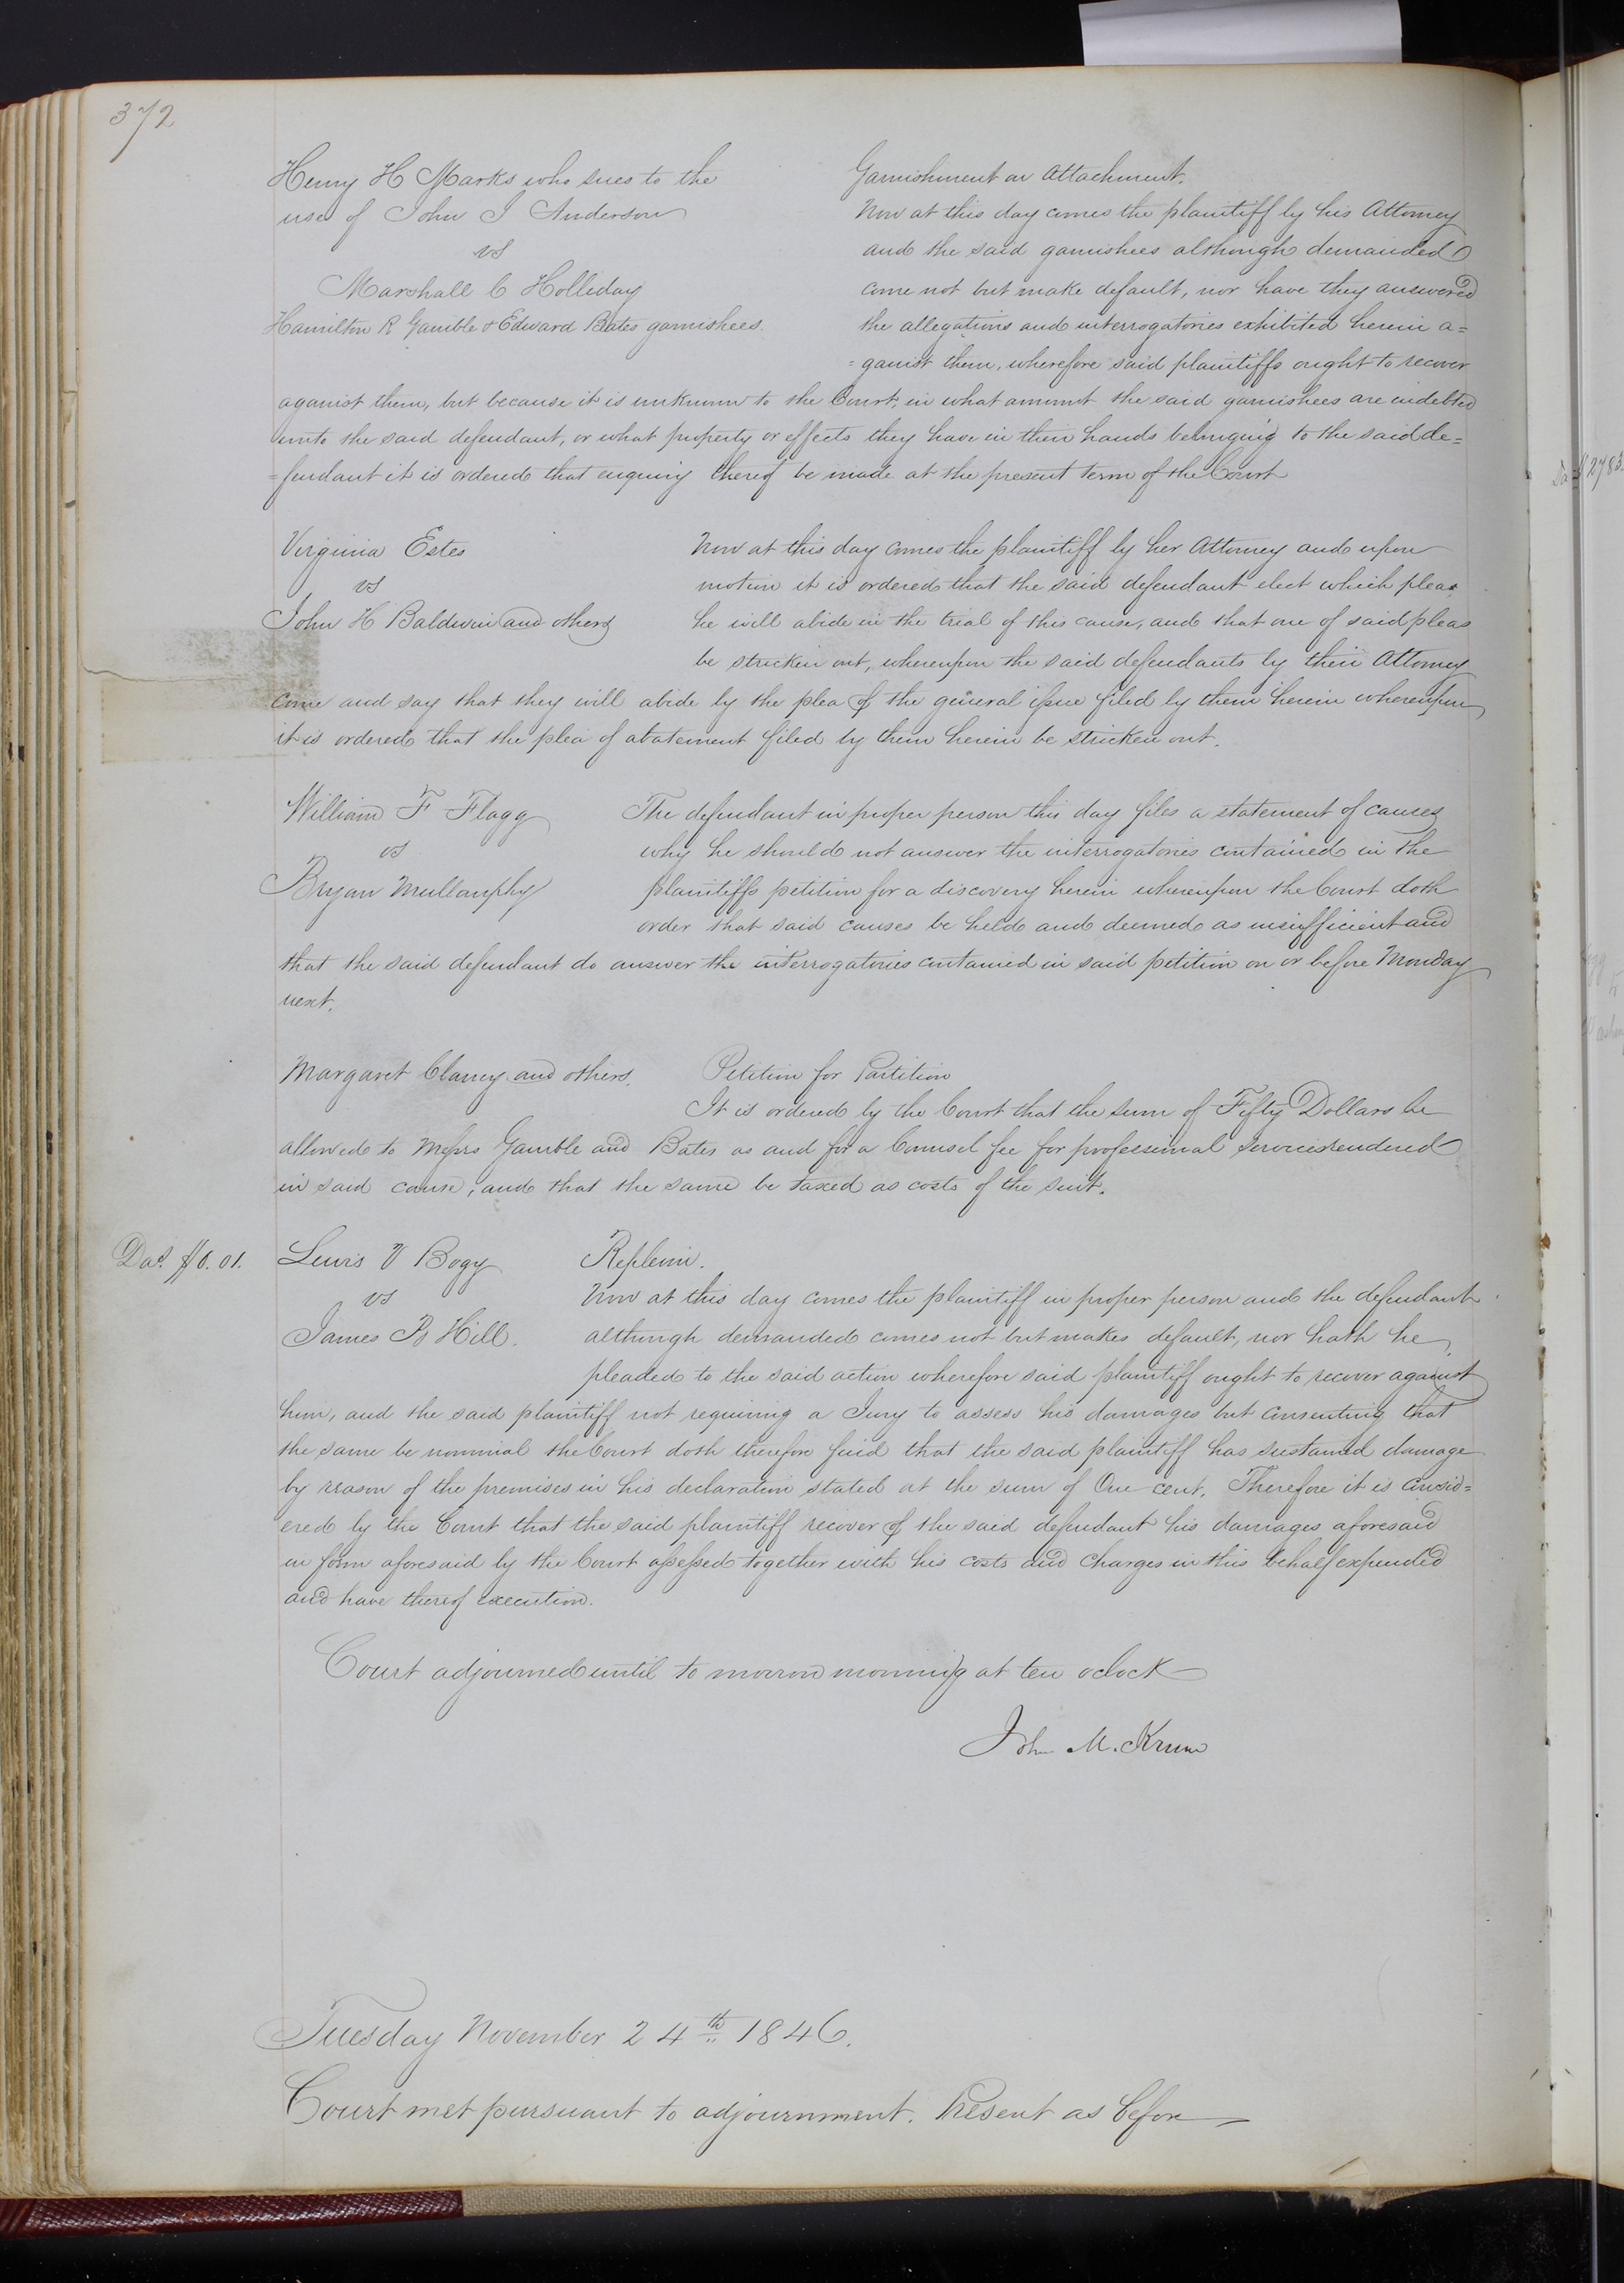 372
Henry H Marks who sues to the
use of John J Anderson
vs
Marshall C Holliday
Hamilton R Gamble & Edward Bates garnishees.
Garnishment on Attachment.
Now at this day comes the plaintiff by his Attorney
and the said garnishees although demanded
come not but make default, nor have they answered
the allegations and interrogatories exhibited herein a=
=gainst them, wherefore said plaintiffs ought to recover
against them, but because it is unknown to the Court, in what amount the said garnishees are indebted
unto the said defendant, or what property or effects they have in their hands belonging to the said de=
=fendant it is ordered that enquiry thereof be made at the present term of the Court
Virginia Estes
vs
John H Baldwin and others
Now at this day comes the plaintiff by her Attorney and upon
motion it is ordered that the said defendant elect which pleas
he will abide in the trial of this cause, and that one of said pleas
be stricken out, whereupon the said defendants by their Attorney
come and say that they will abide by the plea of the general issue filed by them herein whereupon
it is ordered that the plea of abatement filed by them herein be stricken out.
William F Flagg
vs
Bryan Mullanphy
The defendant in proper person this day files a statement of causes
why he should not answer the interrogatories contained in the
plaintiffs petition for a discovery herein whereupon the Court doth
order that said causes be held and deemed as insufficient and
that the said defendant do answer the interrogatories contained in said petition on or before Monday
next.
Margaret Clancy and others.
Petition for Partition
It is ordered by the Court that the sum of Fifty Dollars be
allowed to Messrs Gamble and Bates as and for a Counsel fee for professional services rendered
in said cause, and that the same be taxed as costs of the suit.
Das. $0.01.
Lewis V Bogy
vs
James B Hill.
Replevin.
Now at this day comes the plaintiff in proper person and the defendant
although demanded comes not but makes default, nor hath he
pleaded to the said action wherefore said plaintiff ought to recover against
him, and the said plaintiff not requiring a Jury to assess his damages but consenting that
the same be nominal the Court doth therefore find that the said plaintiff has sustained damage
by reason of the premises in his declaration stated at the sum of One cent. Therefore it is consid=
ered by the Court that the said plaintiff recover of the said defendant his damages aforesaid
in form aforesaid by the Court assessed together with his costs and charges in this behalf expended
and have thereof execution.
Court adjourned until to morrow morning at ten oclock
John M. Krum
Tuesday November 24th 1846.
Court met pursuant to adjournment. Present as before